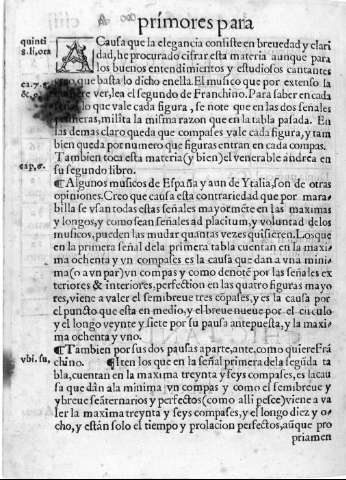 prímores para
quinti
8. li, ora
A Causa que la elegancia consiste en breuedad y clari
dad, he procurado cifrar esta materia aunque para
los buenos entendimientos y estudiosos cantantes
creo que basta lo dicho enella. El musico que por extenso la
quisiere ver, lea el segundo de Franchino. Para saber en cada
señal lo que vale cada figura, se note que en las dos señales
primeras, milita la misma razon que en la tabla passada. En
las demas claro queda que compases vale cada figura, y tam
bien queda por numero que figuras entran en cada compas.
Tambien toca esta materia (y bien) el venerable andrea en
su segundo libro.
ca. 7. e.
cap, 6.
¶ Algunos musicos de España y aun de Ytalia, son de otras
opiniones. Creo que causa esta contrariedad que por mara
billa se vsan todas estas señales mayormẽte en las maximas
y longos, y como sean señales ad placitum, y voluntad delos
musicos, pueden las mudar quantas vezes quisieren. Los que
en la primera señal dela primera tabla cuentan en la maxi
ma ochenta y vn compases es la causa que dan a vna mini-
ma (o a vn par) vn compas y como denotẽ por las señales ex
teriores & interiores, perfection en las quatro figuras mayo
res, viene a valer el semibreue tres cõpases, y es la causa por
el puncto que esta en medio, y el breue nueue por el circulo
y el longo veynte y siete por su pausa antepuesta, y la maxi
ma ochenta y vno.
vbi. su.
¶ Tambien por sus dos pausas aparte, ante, como quiere frã
chino. ¶ Iten los que en la señal primera dela segũda ta
bla, cuentan en la maxima treynta y seys compases, es la cau
sa que dãn ala minima vn compas y como el semibreue y
y breue seã ternarios y perfectos (como alli pesce) viene a va
ler la maxima treynta y seys compases, y el longo diez y o
cho, y están solo el tiempo y prolacion perfectos, aũque pro
priamen